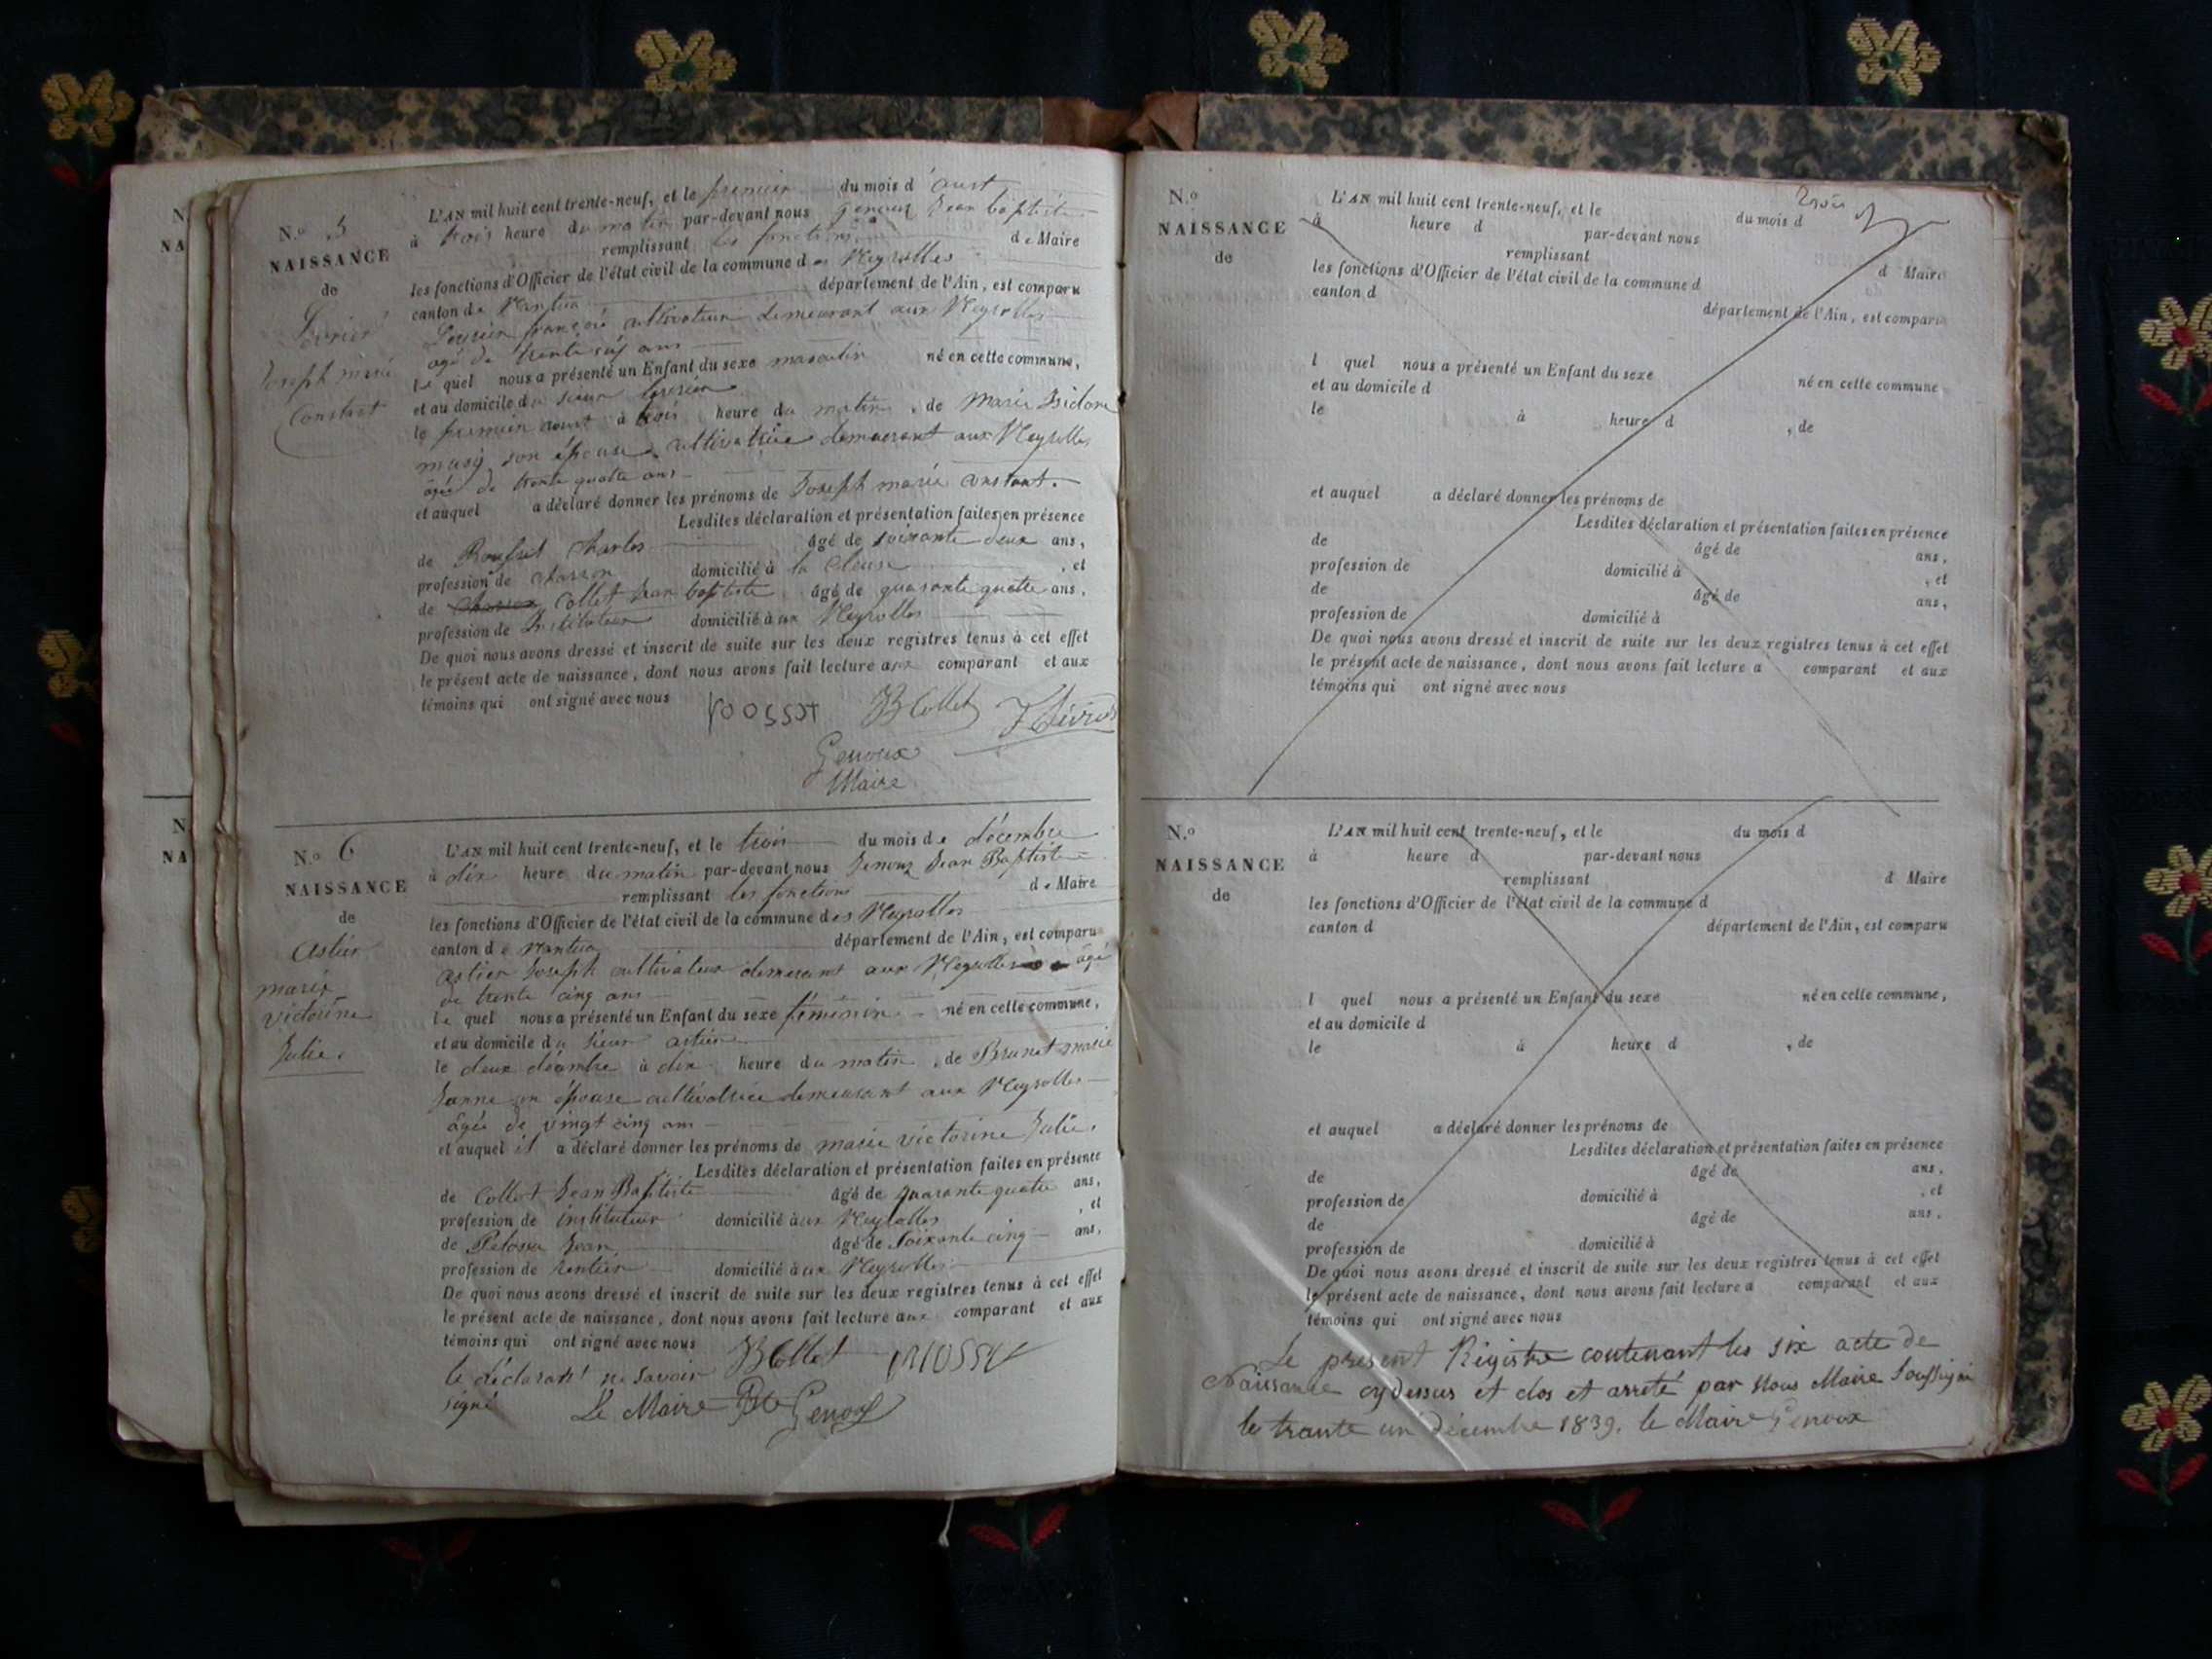 N.o 5
NAISSANCE
de
Joseph marie
Constant
L'AN mil huit cent trente-neuf, et le premier du mois d' aust
à trois heure du matin par-devant nous genoux Jean baptiste
remplissant les fonctions de Maire
les fonctions d'Officier de l'état civil de la commune des Neyrolles
canton de Nantua département de l'Ain, est comparu
françois cultivateur demeurant aux Neyrolles
agé de trente six ans
le quel nous a présenté un Enfant du sexe masculin né en cette commune,
et au domicile du sieur
le premier aout à trois heure du matin, de Marie Isidore
son épouse cultivatrice demeurant aux Neyrolles
agée de trente quatre ans
et auquel a déclaré donner les prénoms de Joseph marie constant.
Lesdites déclaration et présentation faites en présence
de Charles âgé de soixante deux ans,
profession de charron domicilié à la Cluse, et
de Collet Jean baptiste âgé de quarante quatre ans,
profession de Instituteur domicilié aux Neyrolles
De quoi nous avons dressé et inscrit de suite sur les deux registres tenus à cet effet
le présent acte de naissance, dont nous avons fait lecture aux comparant et aux
témoins qui ont signé avec nous
JB Collet
Genoux
Maire
N.o 6
NAISSANCE
de
Astier
marie
victorine
Julie.
L'AN mil huit cent trente-neuf, et le trois du mois de décembre
à dix heure du matin par-devant nous Genoux Jean Baptiste
remplissant les fonctions de Maire
les fonctions d'Officier de l'état civil de la commune des Neyrolles
canton de Nantua département de l'Ain, est comparu
astier Joseph cultivateur demeurant aux Neyrolles agé
de trente cinq ans
le quel nous a présenté un Enfant du sexe féminin né en cette commune,
et au domicile du sieur astier
le deux décembre à dix heure du matin, de Brunet marie
Jeanne son épouse cultivatrice demeurant aux Neyrolles
âgée de vingt cinq ans
et auquel il a déclaré donner les prénoms de marie victorine Julie.
Lesdites déclaration et présentation faites en présence
de Collet Jean Baptiste âgé de quarante quatre ans,
profession de instituteur domicilié aux Neyrolles, et
de Jean âgé de soixante cinq ans,
profession de rentier domicilié aux Neyrolles
De quoi nous avons dressé et inscrit de suite sur les deux registres tenus à cet effet
le présent acte de naissance, dont nous avons fait lecture aux comparant et aux
témoins qui ont signé avec nous
le déclarant ne savoir JB Collet
signé Le Maire Bte Genoux
N.o
NAISSANCE
de
L'AN mil huit cent trente-neuf, et le du mois d
à heure d par-devant nous
remplissant d Maire
les fonctions d'Officier de l'état civil de la commune d
canton d département de l'Ain, est comparu
l quel nous a présenté un Enfant du sexe né en cette commune
et au domicile d
le à heure d , de
et auquel a déclaré donner les prénoms de
Lesdites déclaration et présentation faites en présence
de âgé de ans,
profession de domicilié à , et
de âgé de ans,
profession de domicilié à
De quoi nous avons dressé et inscrit de suite sur les deux registres tenus à cet effet
le présent acte de naissance, dont nous avons fait lecture a comparant et aux
témoins qui ont signé avec nous
N.o
NAISSANCE
de
L'AN mil huit cent trente-neuf, et le du mois d
à heure d par-devant nous
remplissant d Maire
les fonctions d'Officier de l'état civil de la commune d
canton d département de l'Ain, est comparu
l quel nous a présenté un Enfant du sexe né en cette commune,
et au domicile d
le à heure d , de
et auquel a déclaré donner les prénoms de
Lesdites déclaration et présentation faites en présence
de âgé de ans,
profession de domicilié à , et
de âgé de ans,
profession de domicilié à
De quoi nous avons dressé et inscrit de suite sur les deux registres tenus à cet effet
le présent acte de naissance, dont nous avons fait lecture a comparant et aux
témoins qui ont signé avec nous
Le présent Régistre contenant les six acte de
Naissance cydessus et clos et arreté par Nous Maire Soussigné
le trante un décembre 1839. le Maire Genoux